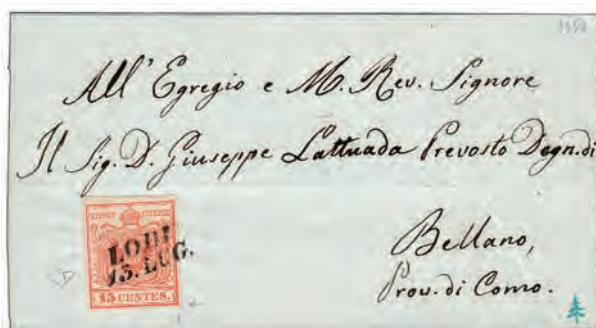 1850
All' Egregio e M. Rev. Signore
Il Sig. D. Giuseppe Lattuada Prevosto Degn. di
LODI
13. LUG.
15 CENTES.
Bellano,
Prov. di Como.